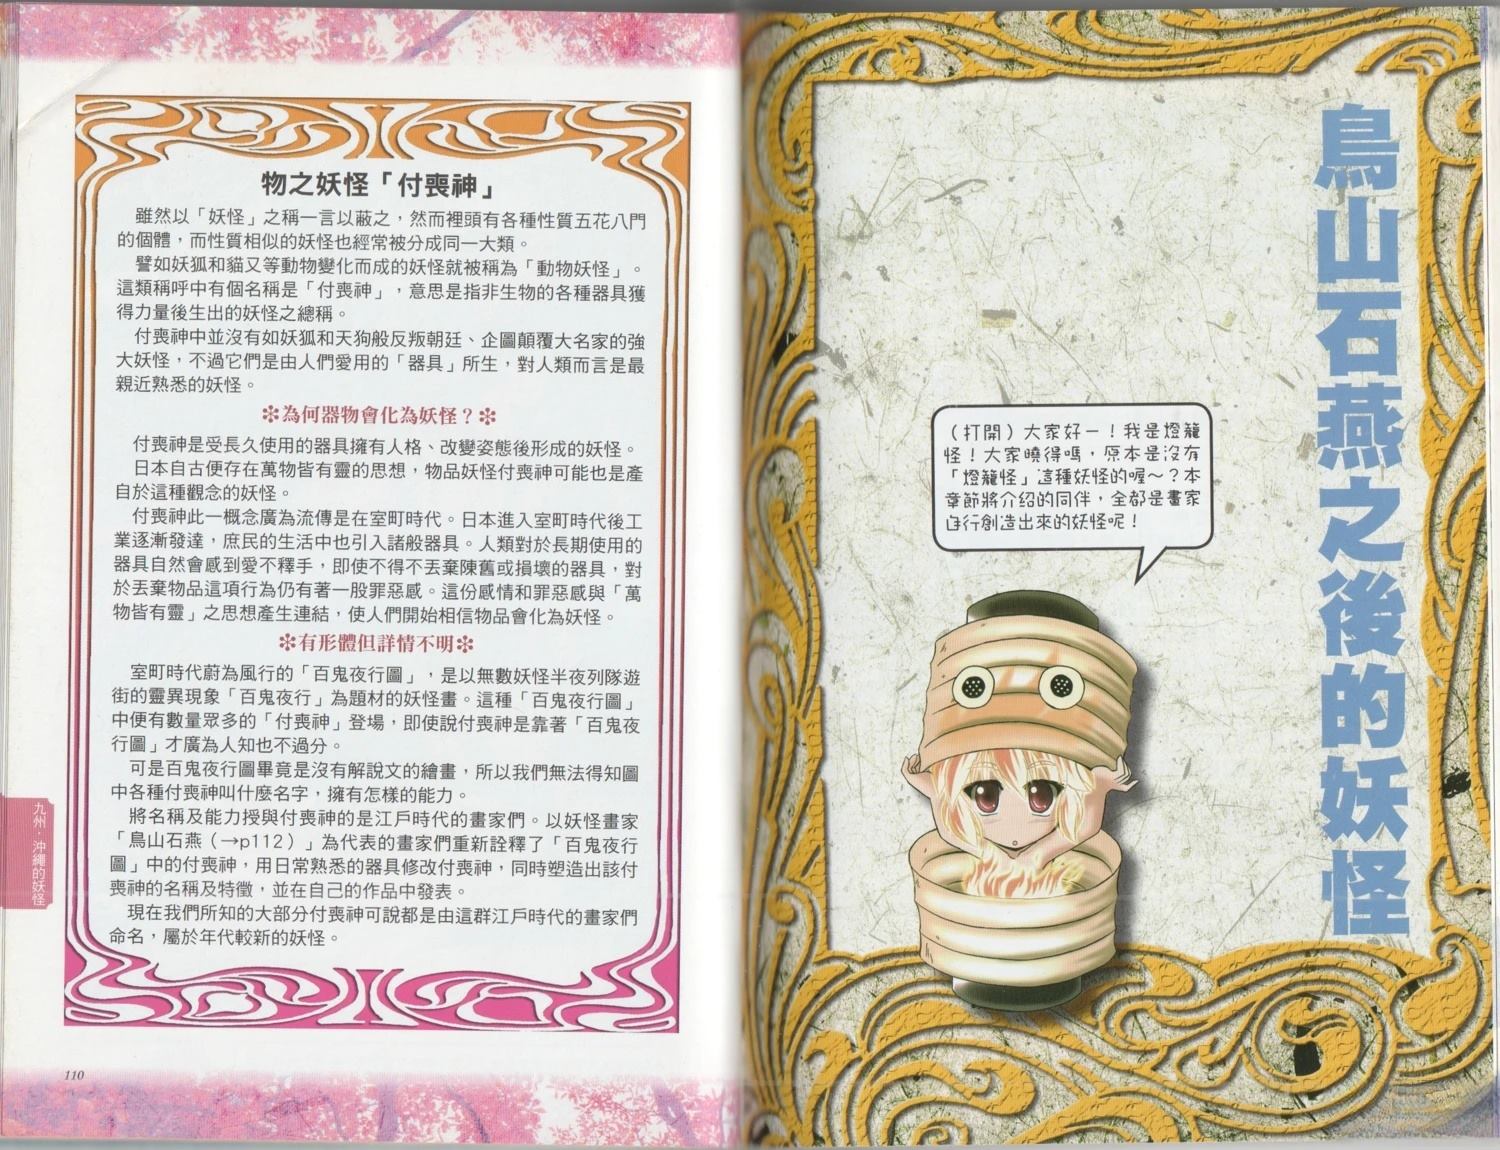 物之妖怪「付喪神」
雖然以「妖怪」之稱一言以蔽之，然而裡頭有各種性質五花八門
的個體，而性質相似的妖怪也經常被分成同一大類。
譬如妖狐和貓又等動物變化而成的妖怪就被稱為「動物妖怪」。
這類稱呼中有個名稱是「付喪神」，意思是指非生物的各種器具獲
得力量後生出的妖怪之總稱。
付喪神中並沒有如妖狐和天狗般反叛朝廷、企圖顛覆大名家的強
大妖怪，不過它們是由人們愛用的「器具」所生，對人類而言是最
親近熟悉的妖怪。
❇為何器物會化為妖怪？❇
付喪神是受長久使用的器具擁有人格、改變姿態後形成的妖怪。
日本自古便存在萬物皆有靈的思想，物品妖怪付喪神可能也是產
自於這種觀念的妖怪。
付喪神此一概念廣為流傳是在室町時代。日本進入室町時代後工
業逐漸發達，庶民的生活中也引入諸般器具。人類對於長期使用的
器具自然會感到愛不釋手，即使不得不丟棄陳舊或損壞的器具，對
於丟棄物品這項行為仍有著一股罪惡感。這份感情和罪惡感與「萬
物皆有靈」之思想產生連結，使人們開始相信物品會化為妖怪。
❇有形體但詳情不明❇
室町時代蔚為風行的「百鬼夜行圖」，是以無數妖怪半夜列隊遊
街的靈異現象「百鬼夜行」為題材的妖怪畫。這種「百鬼夜行圖」
中便有數量眾多的「付喪神」登場，即使說付喪神是靠著「百鬼夜
行圖」才廣為人知也不過分。
可是百鬼夜行圖畢竟是沒有解說文的繪畫，所以我們無法得知圖
中各種付喪神叫什麼名字，擁有怎樣的能力。
將名稱及能力授與付喪神的是江戶時代的畫家們。以妖怪畫家
「鳥山石燕（→p112）」為代表的畫家們重新詮釋了「百鬼夜行
圖」中的付喪神，用日常熟悉的器具修改付喪神，同時塑造出該付
喪神的名稱及特徵，並在自己的作品中發表。
現在我們所知的大部分付喪神可說都是由這群江戶時代的畫家們
命名，屬於年代較新的妖怪。
九州・沖繩的妖怪
110
鳥山石燕之後的妖怪
（打開）大家好－！我是燈籠
怪！大家曉得嗎，原本是沒有
「燈籠怪」這種妖怪的喔～？本
章節將介紹的同伴，全都是畫家
自行創造出來的妖怪呢！